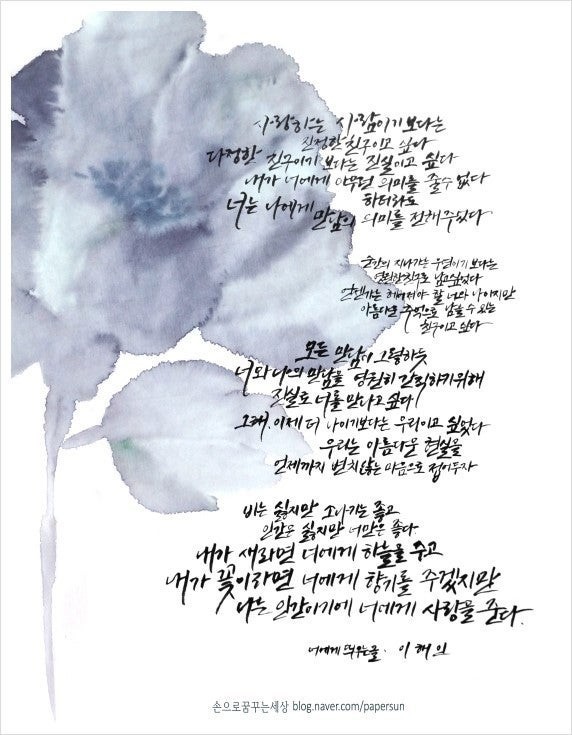 사랑하는 사람이기보다는
진정한 친구이고 싶다
다정한 친구이기 보다는 진실이고 싶다
내가 너에게 아무런 의미를 줄수 없다
하더라도
너는 나에게 만남의 의미를 전해주었다
순간의 지나가는 우연이기 보다는
영원한 친구로 남고싶었다
언젠가는 헤어져야 할 너와 나이지만
아름다운 추억으로 남을 수 있는
친구이고 싶다
모든 만남이 그러하듯
너와 나의 만남을 영원히 간직하기 위해
진실로 너를 만나고 싶다
그래, 이제 더 나이기보다는 우리이고 싶었다
우리는 아름다운 현실을
언제까지 변치 않는 마음으로 접어두자
비는 싫지만 소나기는 좋고
인간은 싫지만 너만은 좋다
내가 새라면 너에게 하늘을 주고
내가 꽃이라면 너에게 향기를 주겠지만
나는 인간이기에 너에게 사랑을 준다.
너에게 띄우는 글 · 이해인
손으로꿈꾸는세상 blog.naver.com/papersun